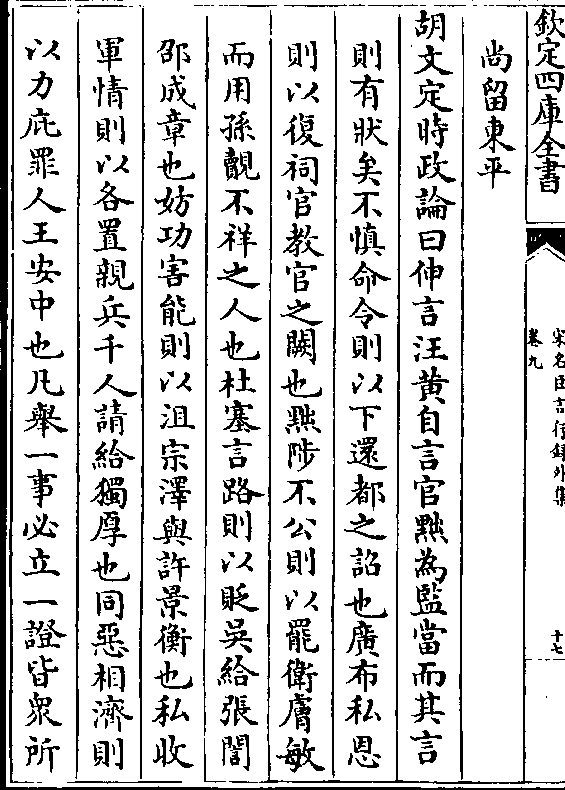 欽定四庫全書
宋名臣言行録外集
卷九
十七
尚留東平
胡文定時政論曰伸言汪黄自言官黜為監當而其言
則有狀矣不慎命令則以下還都之詔也廣布私恩
則以復祠官教官之闕也黜陟不公則以罷衛膚敏
而用孫覿不祥之人也杜塞言路則以貶吳給張誾
邵成章也妨功害能則以沮宗澤與許景衡也私收
軍情則以各置親兵千人請給獨厚也同惡相濟則
以力庇罪人王安中也凡舉一事必立一證皆衆所